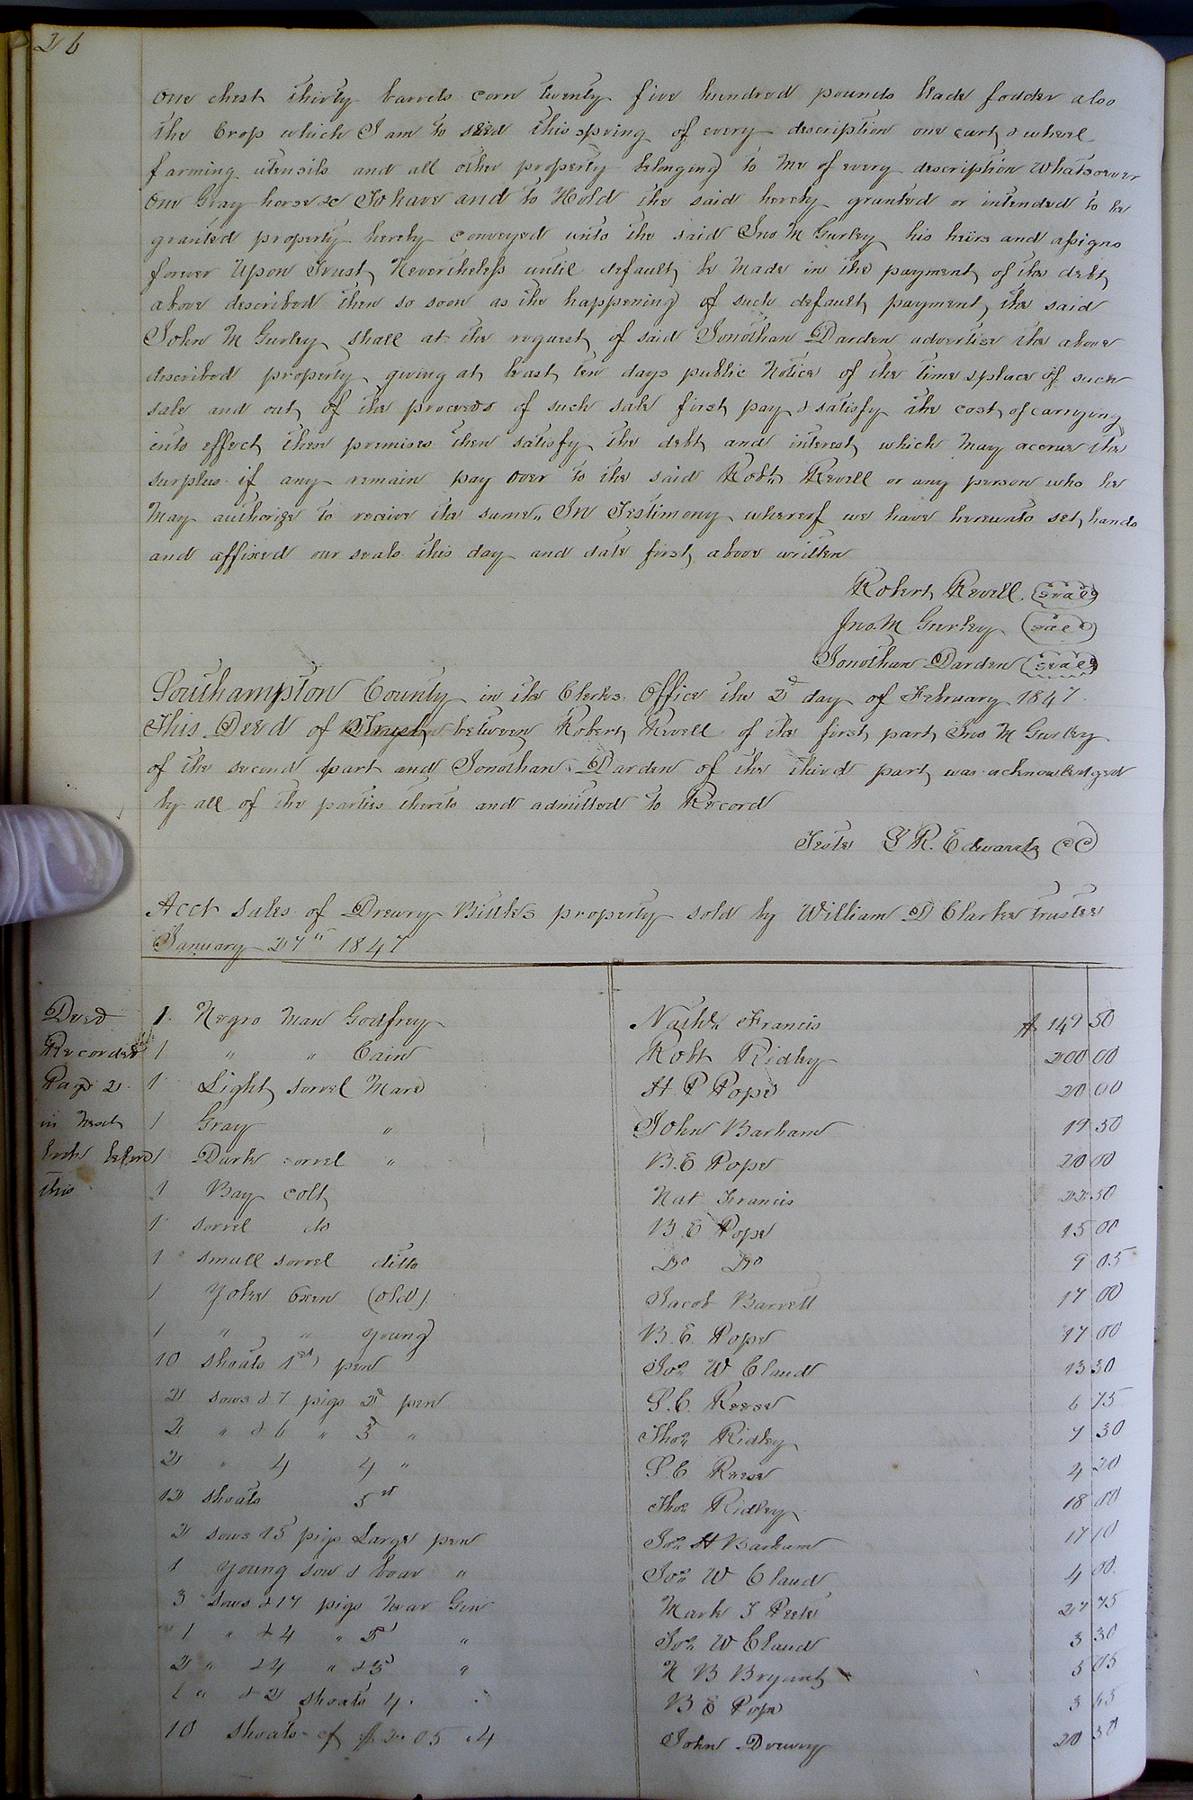 26
one chest thirty barrels corn twenty five hundred pounds blade fodder also
the Crop which I am to seed this spring of every description one cart & wheel
farming utensils and all other property belonging to me of every description whatsoever
One Gray horse &c To have and to Hold the said hereby granted or intended to be
granted property hereby conveyed unto the said Jno M Gurley his heirs and assigns
forever Upon Trust Nevertheless until default be made in the payment of the debt
above described then so soon as the happening of such default payment the said
John M Gurley shall at the request of said Jonathan Darden advertise the above
described property giving at least ten days public Notice of the time & place of such
sale and out of the proceeds of such sale first pay & satisfy the cost of carrying
into effect these premises then satisfy the debt and interest which may accrue the
surplus if any remain pay over to the said Robt. Revell or any person who he
May authorize to receive the same. In Testimony whereof we have hereunto set hands
and affixed our seals this day and date first above written
Robert Revell (seal)
Jno. M Gurley (seal)
Jonathan Darden (seal)
Southampton County in the Clerks Office the 2d day of February 1847
This Deed of Trust between Robert Revell of the first part Jno M Gurley
of the second part and Jonathan Darden of the third part was acknowledged
by all of the parties thereto and admitted to Record
Teste L R. Edwards CC
Acct Sales of Drewry Bittle's property sold by William D Clarke trustee
January 27th 1847
Deed 1 Negro Man Godfrey Nathl. Francis $ 149 50
Recorded 1 " " Cain Robt Ridley 200 00
Page 2 1 Light sorrel Mare H. P Pope 20 00
in next 1 Gray " John Barham 19 50
book before 1 Dark sorrel " B. E Pope 20 00
this 1 Bay colt Nat Francis 22 50
1 sorrel do B. E Pope 15 00
1 small sorrel ditto Do Do 9 05
1 Yoke Oxen (old) Jacob Barrett 17 00
1 " " young B. E. Pope 17 00
10 shoats 1st pen Jos. W Claud 13 30
2 sows & 7 pigs 2d pen S. C. Reese 6 75
2 " & 6 " 3d " Thos. Ridley 7 30
2 " 4 4 " S. C Reese 4 20
12 shoats 5th Thos Ridley 18 00
2 sows 15 pigs Large pen Jos. H Barham 17 10
1 young sow & boar " Jos. W Claud 4 00
3 sows & 17 pigs near Gin Mark J Peete 27 75
1 " & 4 " 5 " Jos. W Claud 3 30
2 " & 4 " & 3 " N B Bryant 5 05
1 " & 2 shoats 4. B E Pope 3 65
10 shoats of $ 2.05 4 John Drewry 20 50